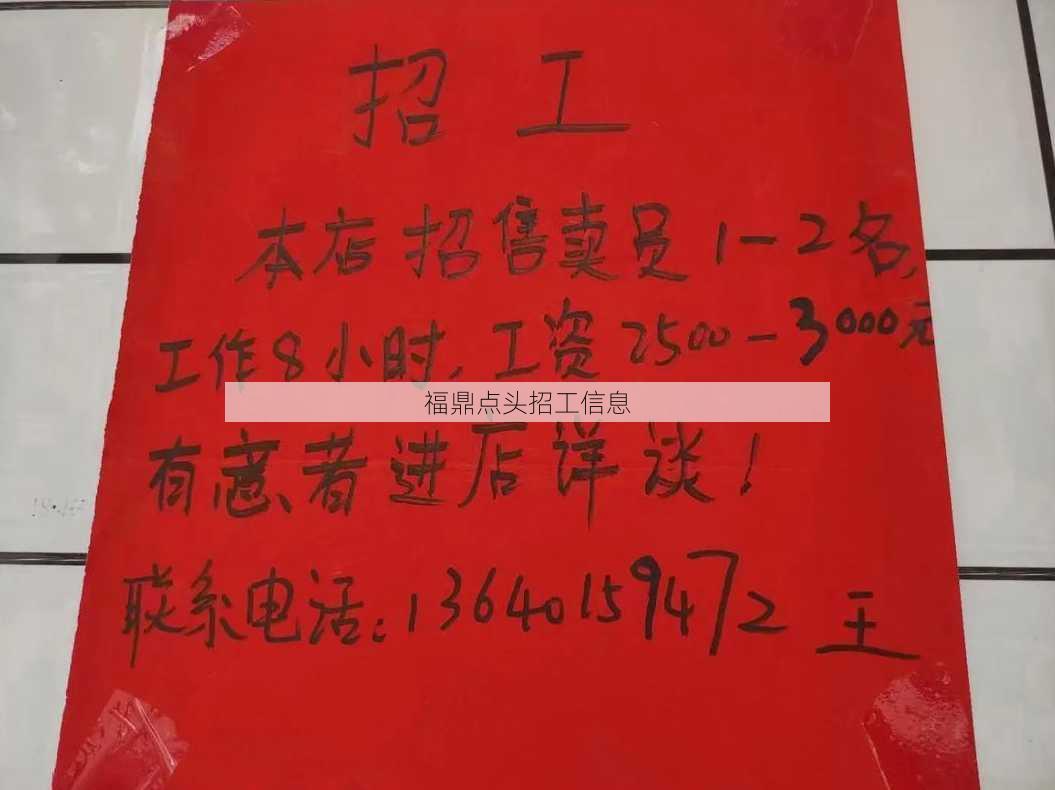 招工
本店招售卖员1-2名,
工作8小时,工资2500-3000元
福鼎点头招工信息
有意者进店详谈!
联系电话:13640159472 王